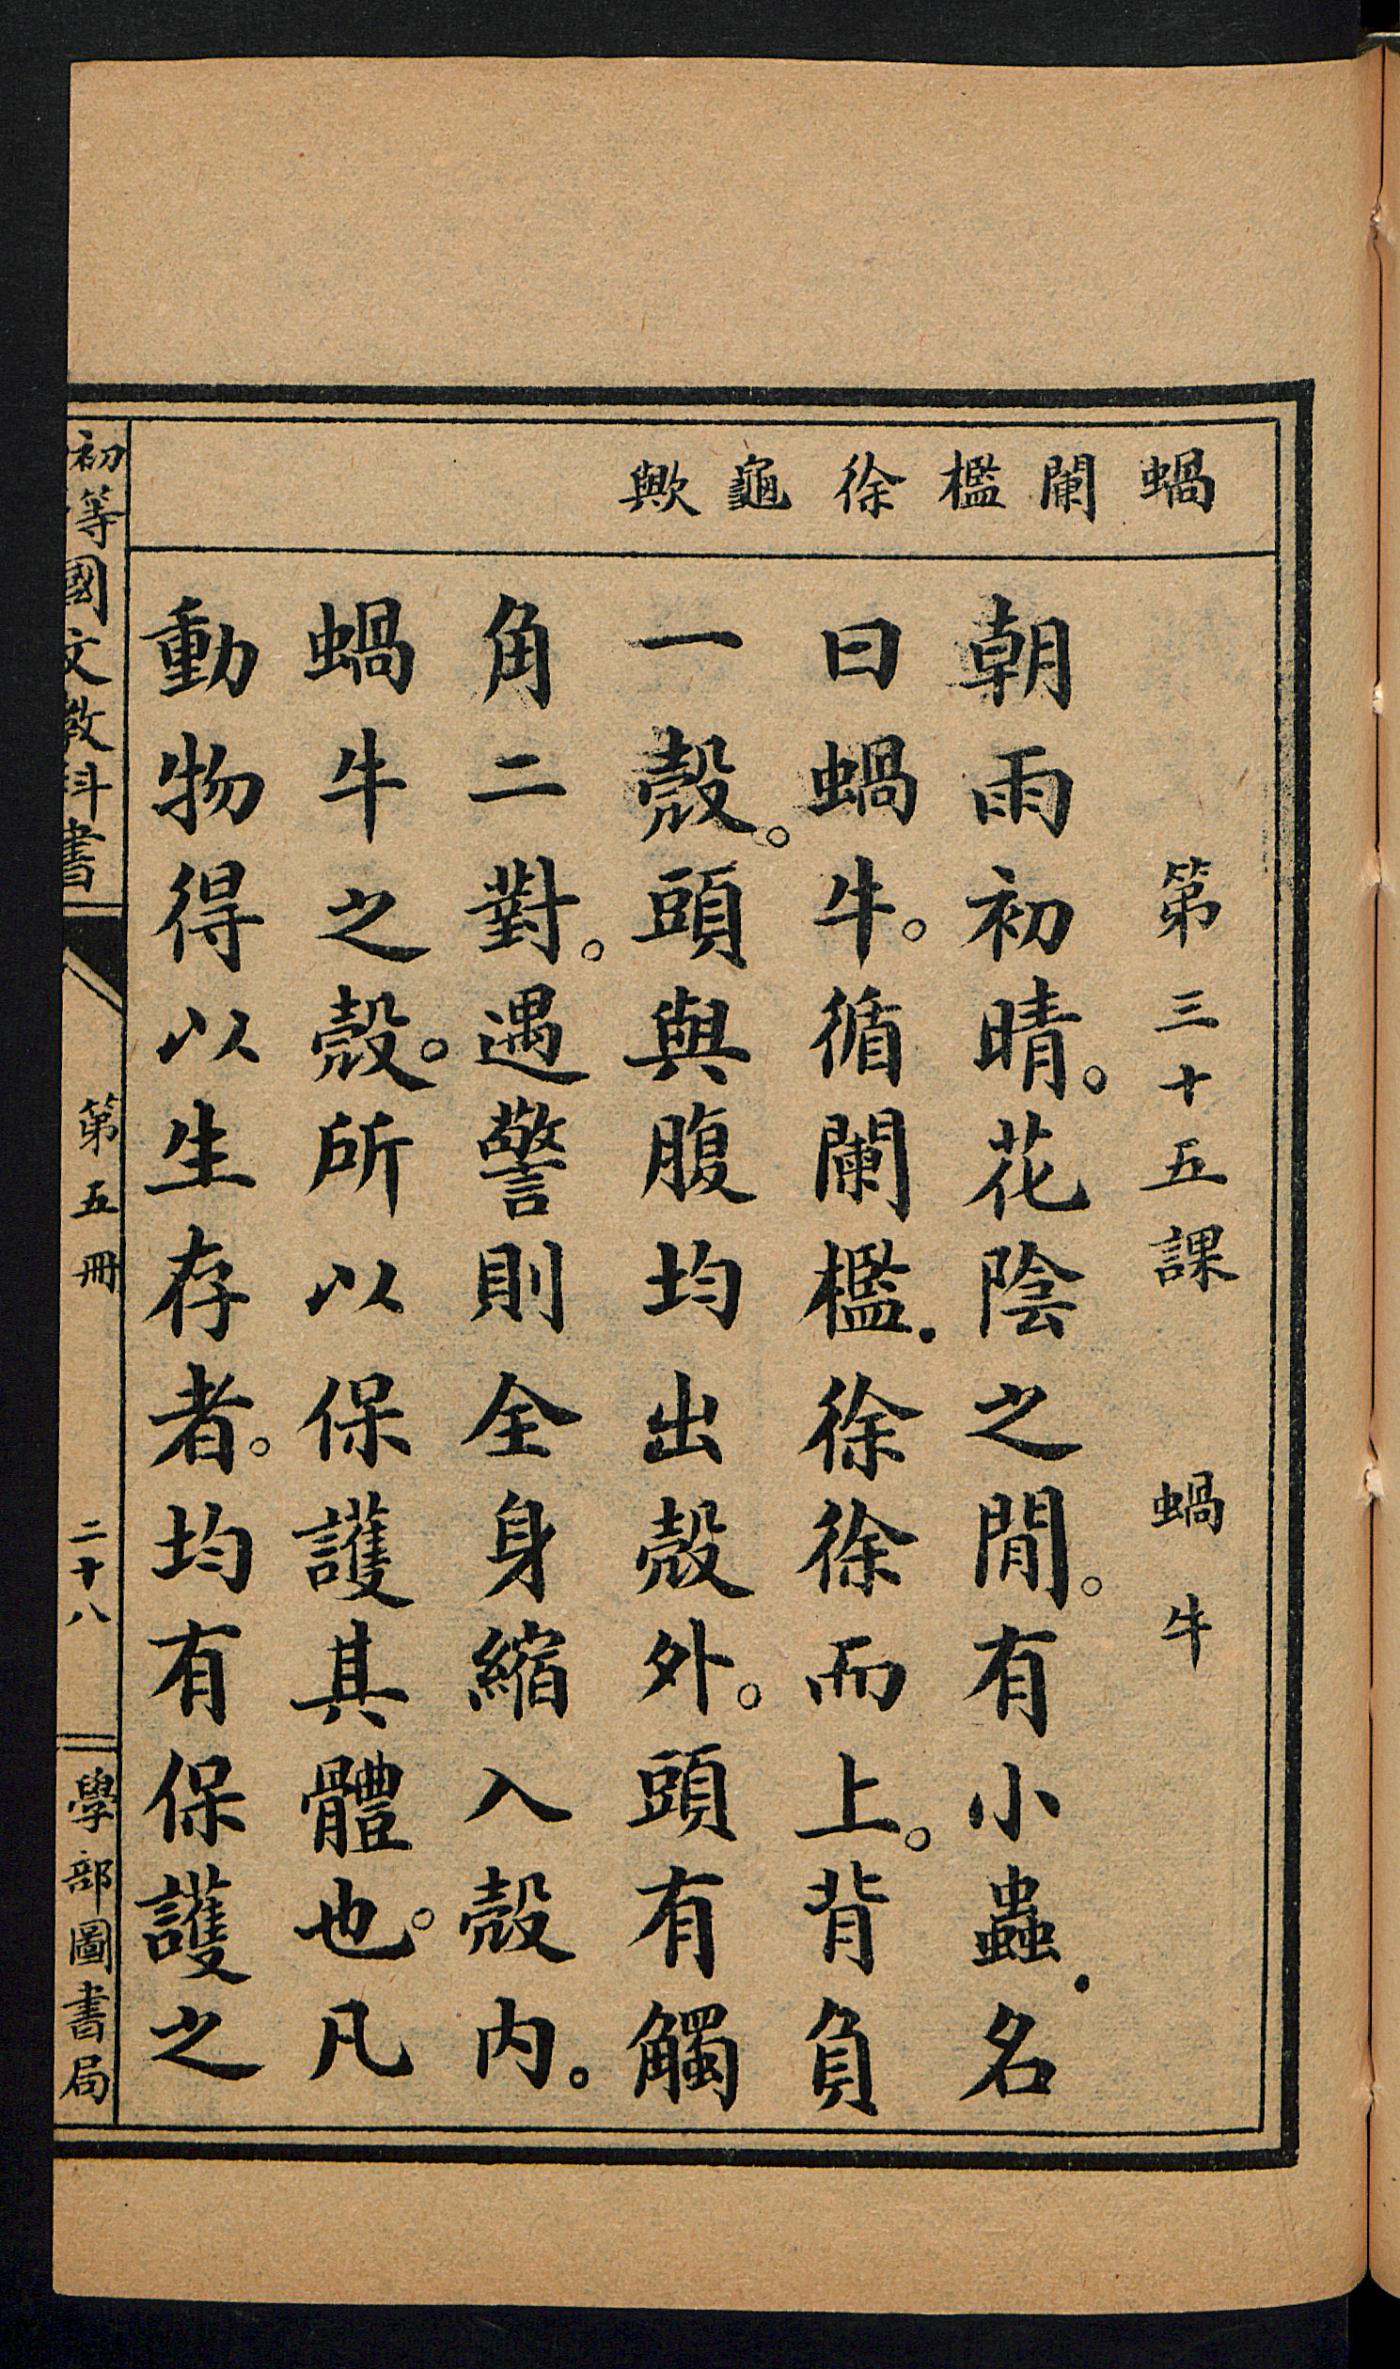 蝸闌檻徐龜歟
第三十五課　蝸牛
朝雨初晴。花陰之閒。有小蟲.名
曰蝸牛。循闌檻.徐徐而上。背負
一殼。頭與腹均出殼外。頭有觸
角二對。遇警則全身縮入殼內。
蝸牛之殼。所以保護其體也。凡
動物得以生存者。均有保護之
初等國文教科書　第五冊　二十八　學部圖書局